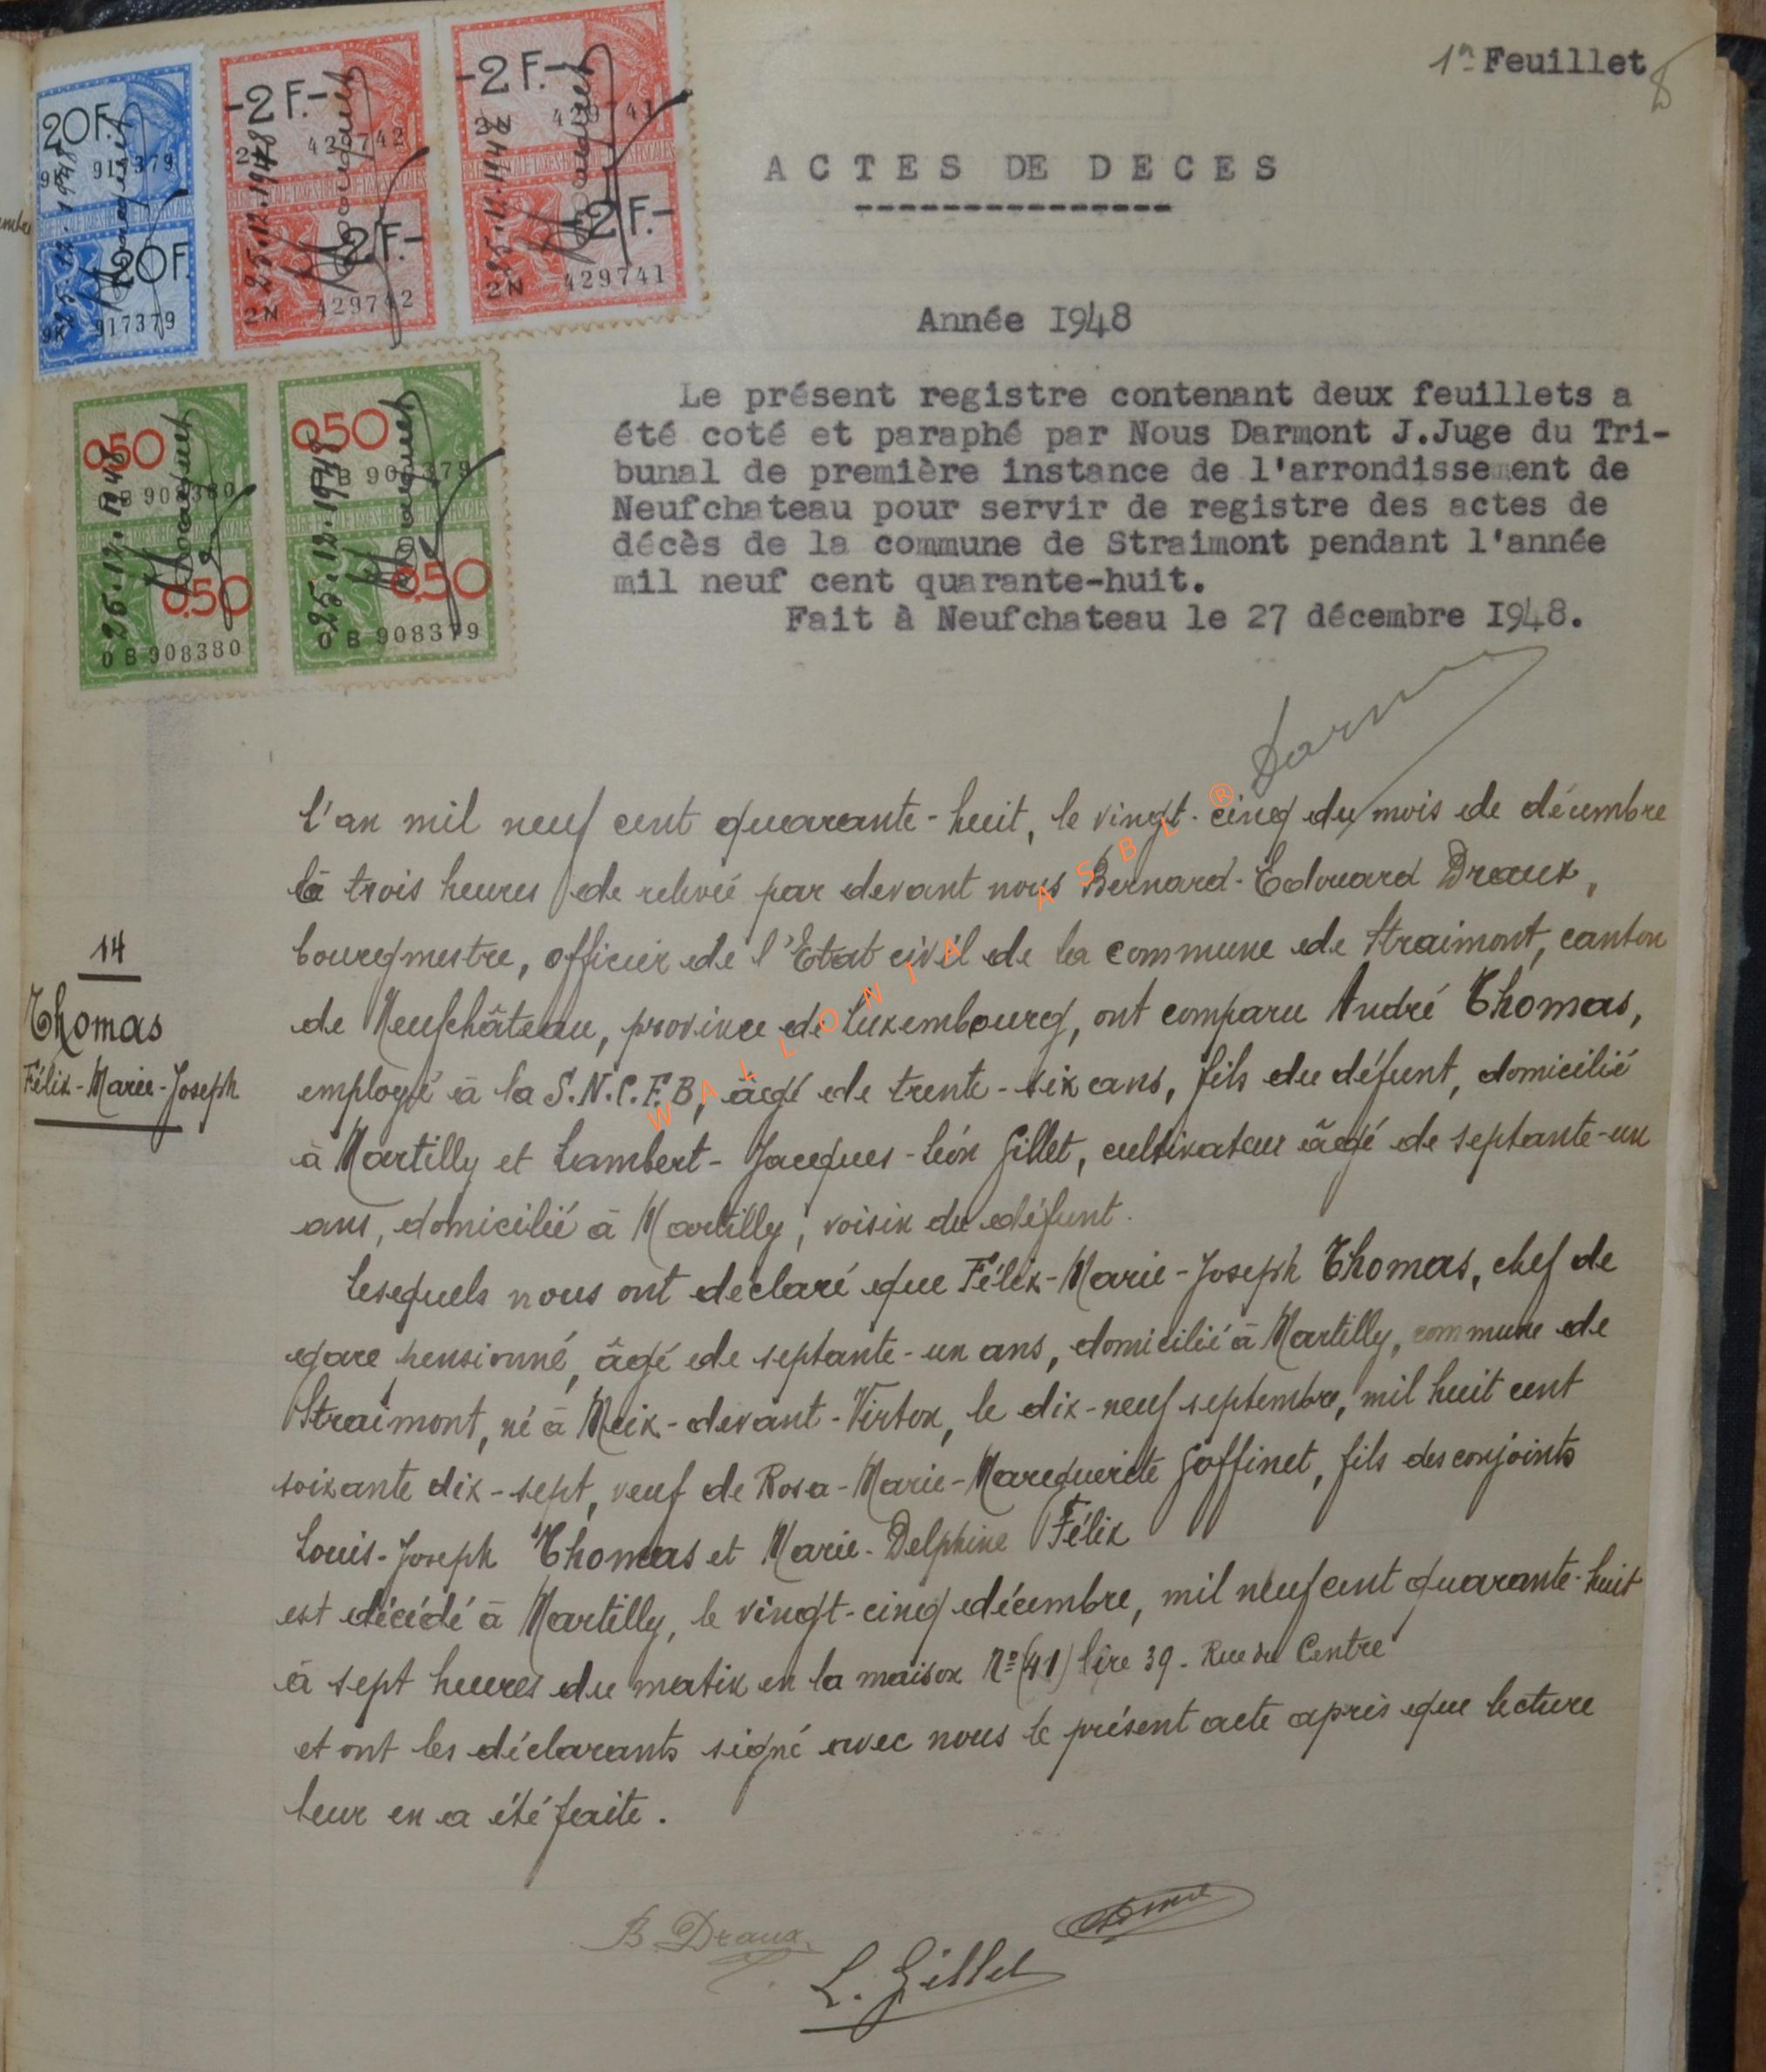 1er Feuillet
ACTES DE DECES
Année 1948
Le présent registre contenant deux feuillets a
été coté et paraphé par Nous Darmont J.Juge du Tri-
bunal de première instance de l'arrondissement de
Neufchateau pour servir de registre des actes de
décès de la commune de Straimont pendant l'année
mil neuf cent quarante-huit.
Fait à Neufchateau le 27 décembre 1948.
20F.
9K 917379
20F.
9K 917379
-2F.-
2N 429742
2F.-
2N 429742
-2F.-
2N 429741
2F.-
2N 429741
25.12.1948
25.12.1948
25.12.1948
0,50
0 B 908380
0,50
0 B 908380
0,50
0 B 908379
0,50
0 B 908379
25.12.1948
25.12.1948
14
Thomas
Félix-Marie-Joseph
L'an mil neuf cent quarante-huit, le vingt-cinq du mois de décembre
à trois heures de relevée par devant nous Bernard-Edouard Draux,
bourgmestre, officier de l'Etat civil de la commune de Straimont, canton
de Neufchâteau, province de Luxembourg, ont comparu André Thomas,
employé à la S.N.C.F.B, âgé de trente-six ans, fils du défunt, domicilié
à Martilly et Lambert-Jacques-Léon Gillet, cultivateur âgé de septante-un
ans, domicilié à Martilly, voisin du défunt.
Lesquels nous ont déclaré que Félix-Marie-Joseph Thomas, chef de
gare pensionné, âgé de septante-un ans, domicilié à Martilly, commune de
Straimont, né à Meix-devant-Virton, le dix-neuf septembre, mil huit cent
soixante dix-sept, veuf de Rosa-Marie-Marguerite Goffinet, fils des conjoints
Louis-Joseph Thomas et Marie-Delphine Félix
est décédé à Martilly, le vingt-cinq décembre, mil neuf cent quarante-huit
à sept heures du matin en la maison No (41) lire 39 - Rue du Centre
et ont les déclarants signé avec nous le présent acte après que lecture
leur en a été faite.
B. Draux
L. Gillet
WALLONIA ASBL ®